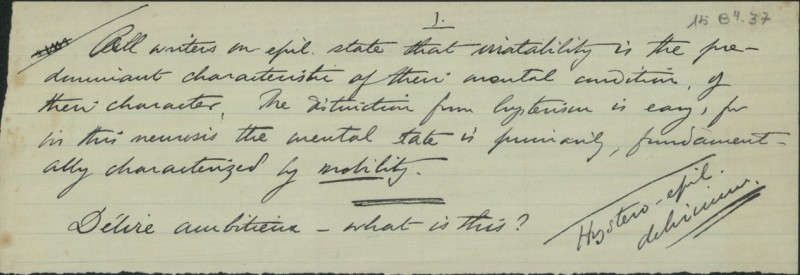 1.
15 B4. 37
All writers on epil. state that irratability is the pre-
dominant characteristic of their mental condition, of
their character. The distinction from hysterism is easy, for
in this neurosis the mental state is primarily, fundament-
ally characterized by mobility.
Délire ambitieux – what is this?
Hystero-epil.
delirium.